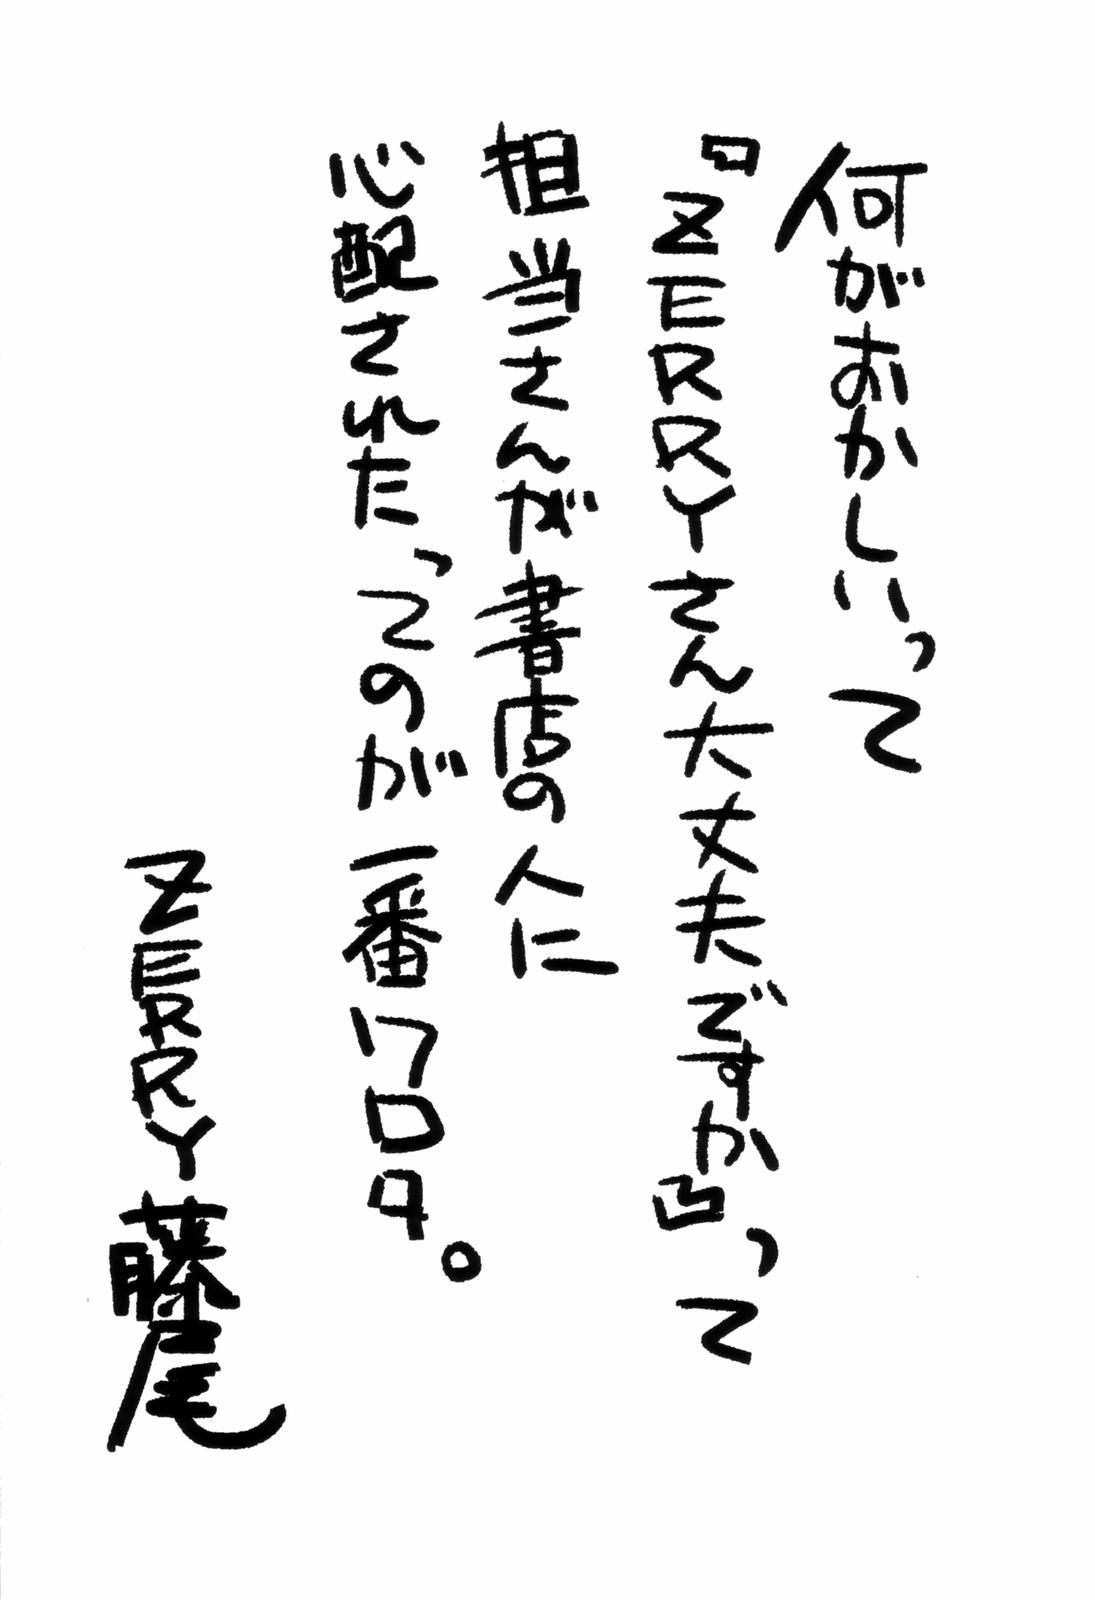 何がおかしいって
『ZERRYさん大丈夫ですか凹って
担当さんが書店の人に
心配された、てのが一番ワロタ。
ZERRY藤尾